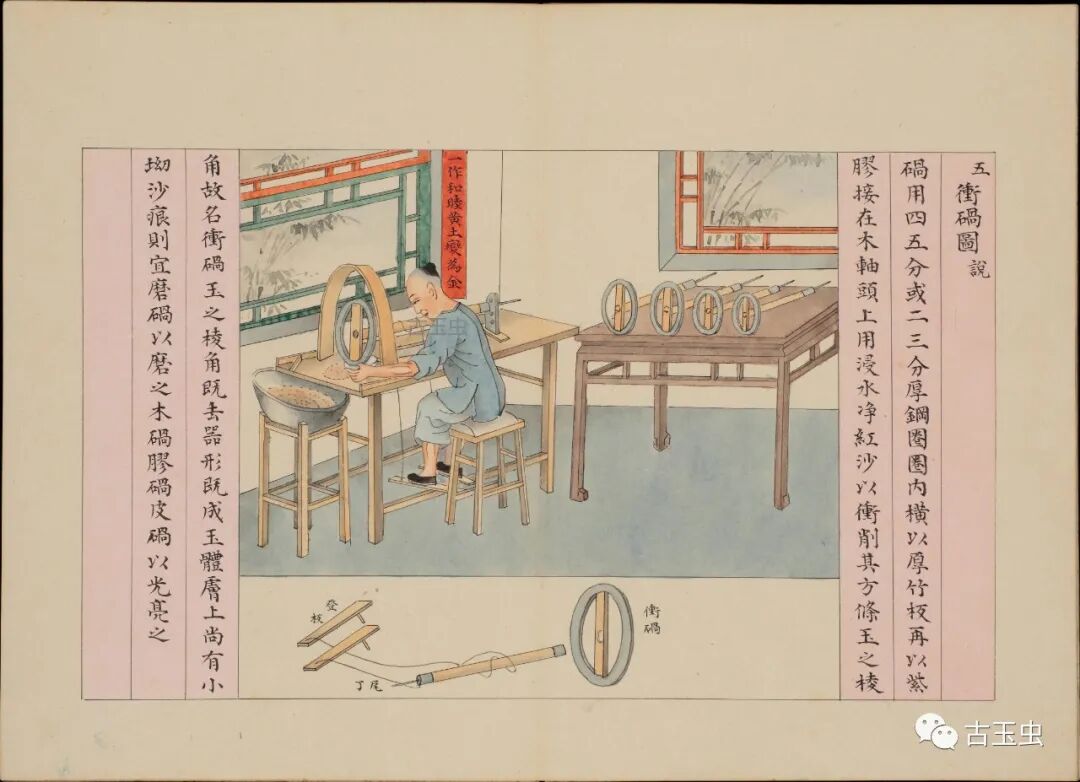 五 衝碢圖 說
碢用四五分或二三分厚鋼圈圈内橫以厚竹板再以紫
膠接在木軸頭上用浸水净紅沙以衝削其方條玉之棱
角故名衝碢玉之棱角既去器形既成玉體膚上尚有小
坳沙痕則宜磨碢以磨之木碢膠碢皮碢以光亮之
一作和睦黄土變為金
衝碢
登板
尾丁
古玉虫
古玉虫